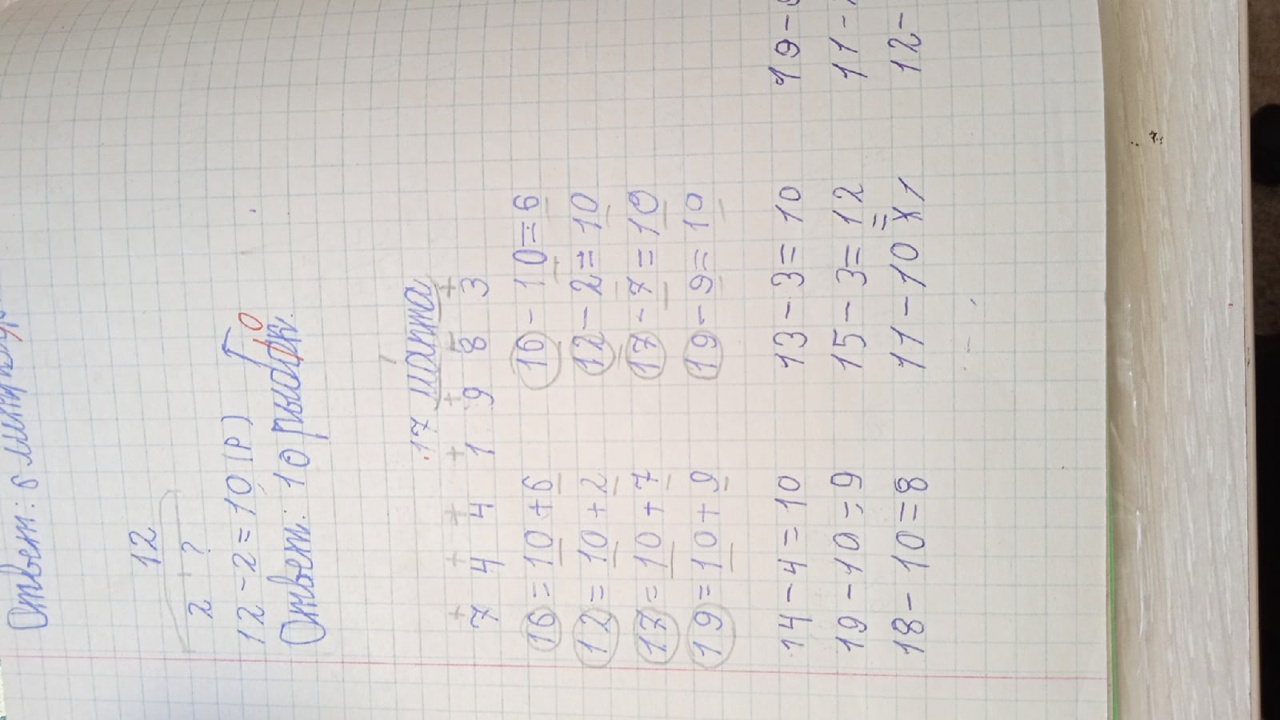 Ответ: 6 литров
12
2 ?
12 - 2 = 10 (Р)
Ответ: 10 рыбок.
17 марта
7 4 4 1 9 8 3
16 = 10 + 6 16 - 10 = 6
12 = 10 + 2 12 - 2 = 10
17 = 10 + 7 17 - 7 = 10
19 = 10 + 9 19 - 9 = 10
14 - 4 = 10 13 - 3 = 10 19 -
19 - 10 = 9 15 - 3 = 12 11 -
18 - 10 = 8 11 - 10 = 1 12 -